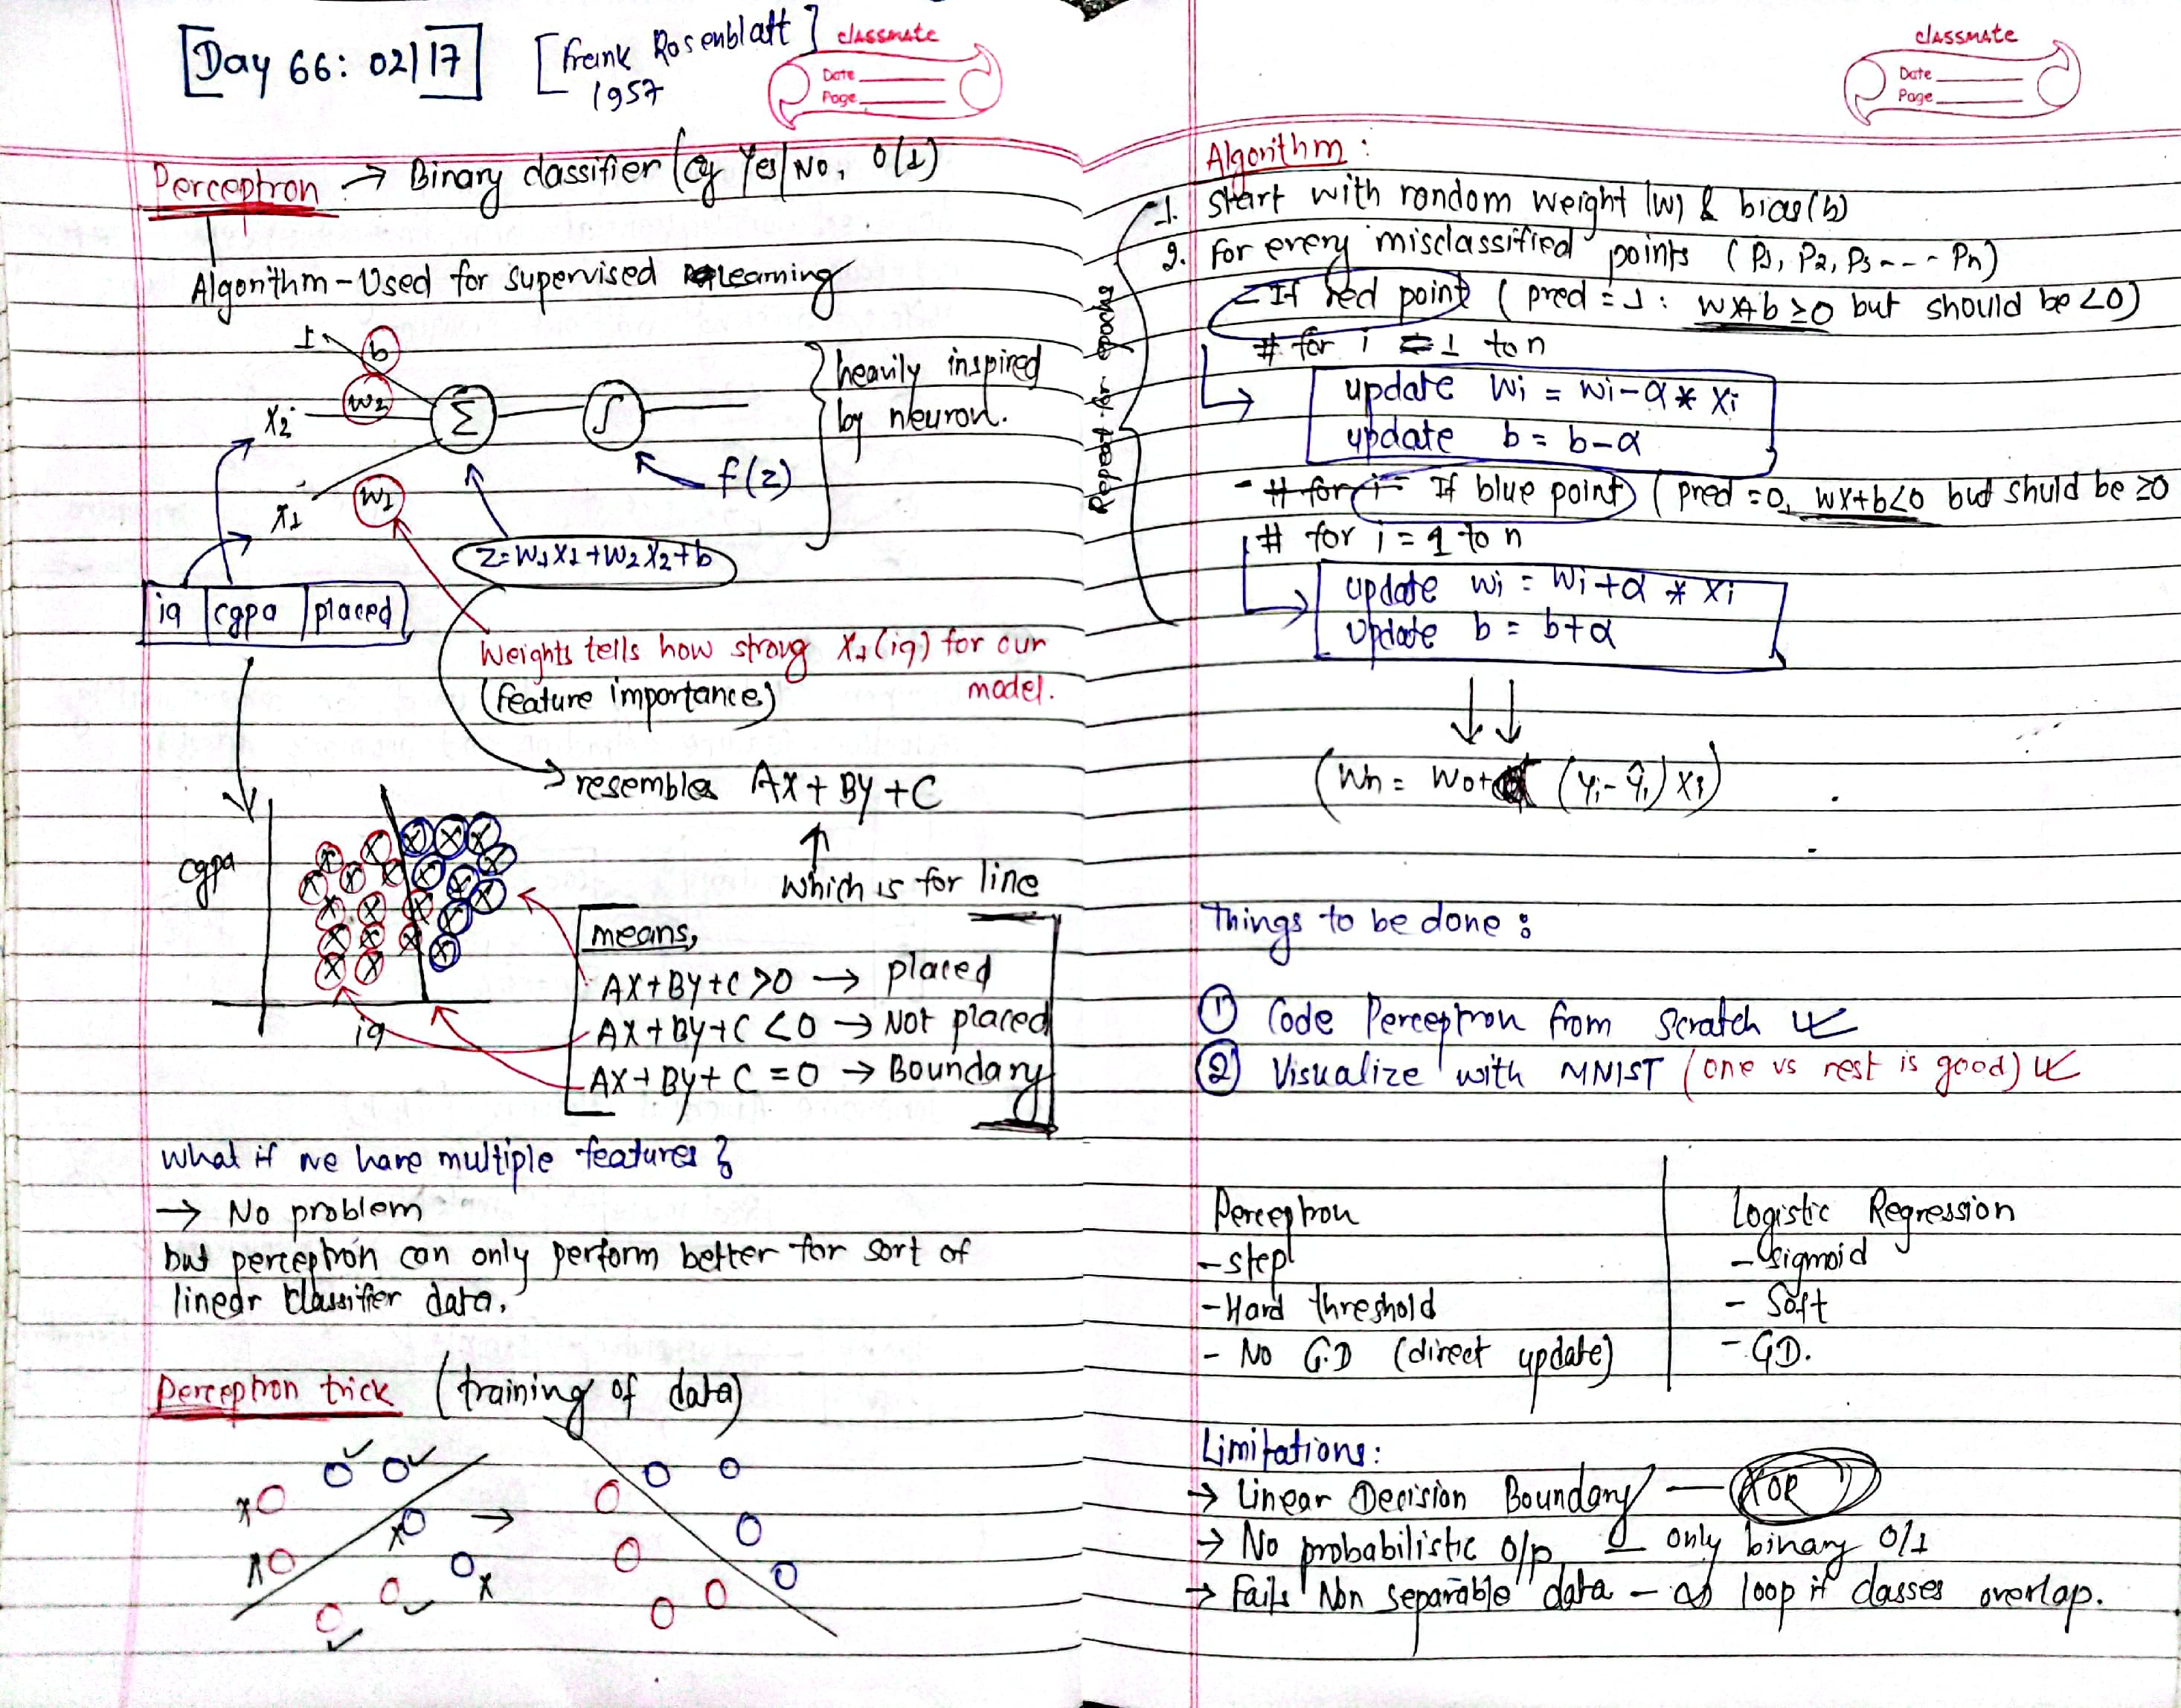 [Day 66: 02/17]
[Frank Rosenblatt]
1957
classmate
Date
Page
Perceptron → Binary classifier (eg Yes/No, 0/1)
Algorithm - Used for supervised learning
1
b
w2
x2
Σ
∫
f(z)
heavily inspired
by neuron.
x1
w1
z=w1x1+w2x2+b
iq | cgpa | placed
Weights tells how strong x1(iq) for our
model.
(feature importance)
resembles Ax + By + C
which is for line
cgpa
iq
means,
Ax+By+C >0 → placed
Ax+By+C <0 → Not placed
Ax+By+C = 0 → Boundary
What if we have multiple features?
→ No problem
but perceptron can only perform better for sort of
linear classifier data.
Perceptron trick (training of data)
classmate
Date
Page
Algorithm:
Repeat for epochs
1. Start with random weight (w) & bias(b)
2. For every misclassified points (P1, P2, P3 --- Pn)
- If red point (pred = 1 : wx+b ≥0 but should be <0)
# for i = 1 to n
update wi = wi - α * xi
update b = b - α
- # for i = If blue point (pred = 0, wx+b<0 but shuld be ≥0
# for i = 1 to n
update wi = wi + α * xi
update b = b + α
↓↓
(Wn = Wo + (yi - ŷi) xi)
Things to be done :
① Code Perceptron from Scratch
② Visualize with MNIST (one vs rest is good)
Perceptron
- step
- Hard threshold
- No G.D (direct update)
Logistic Regression
- sigmoid
- Soft
- GD.
Limitations:
→ Linear Decision Boundary — XOR
→ No probabilistic o/p — only binary 0/1
→ Fails Non separable data - ∞ loop if classes overlap.